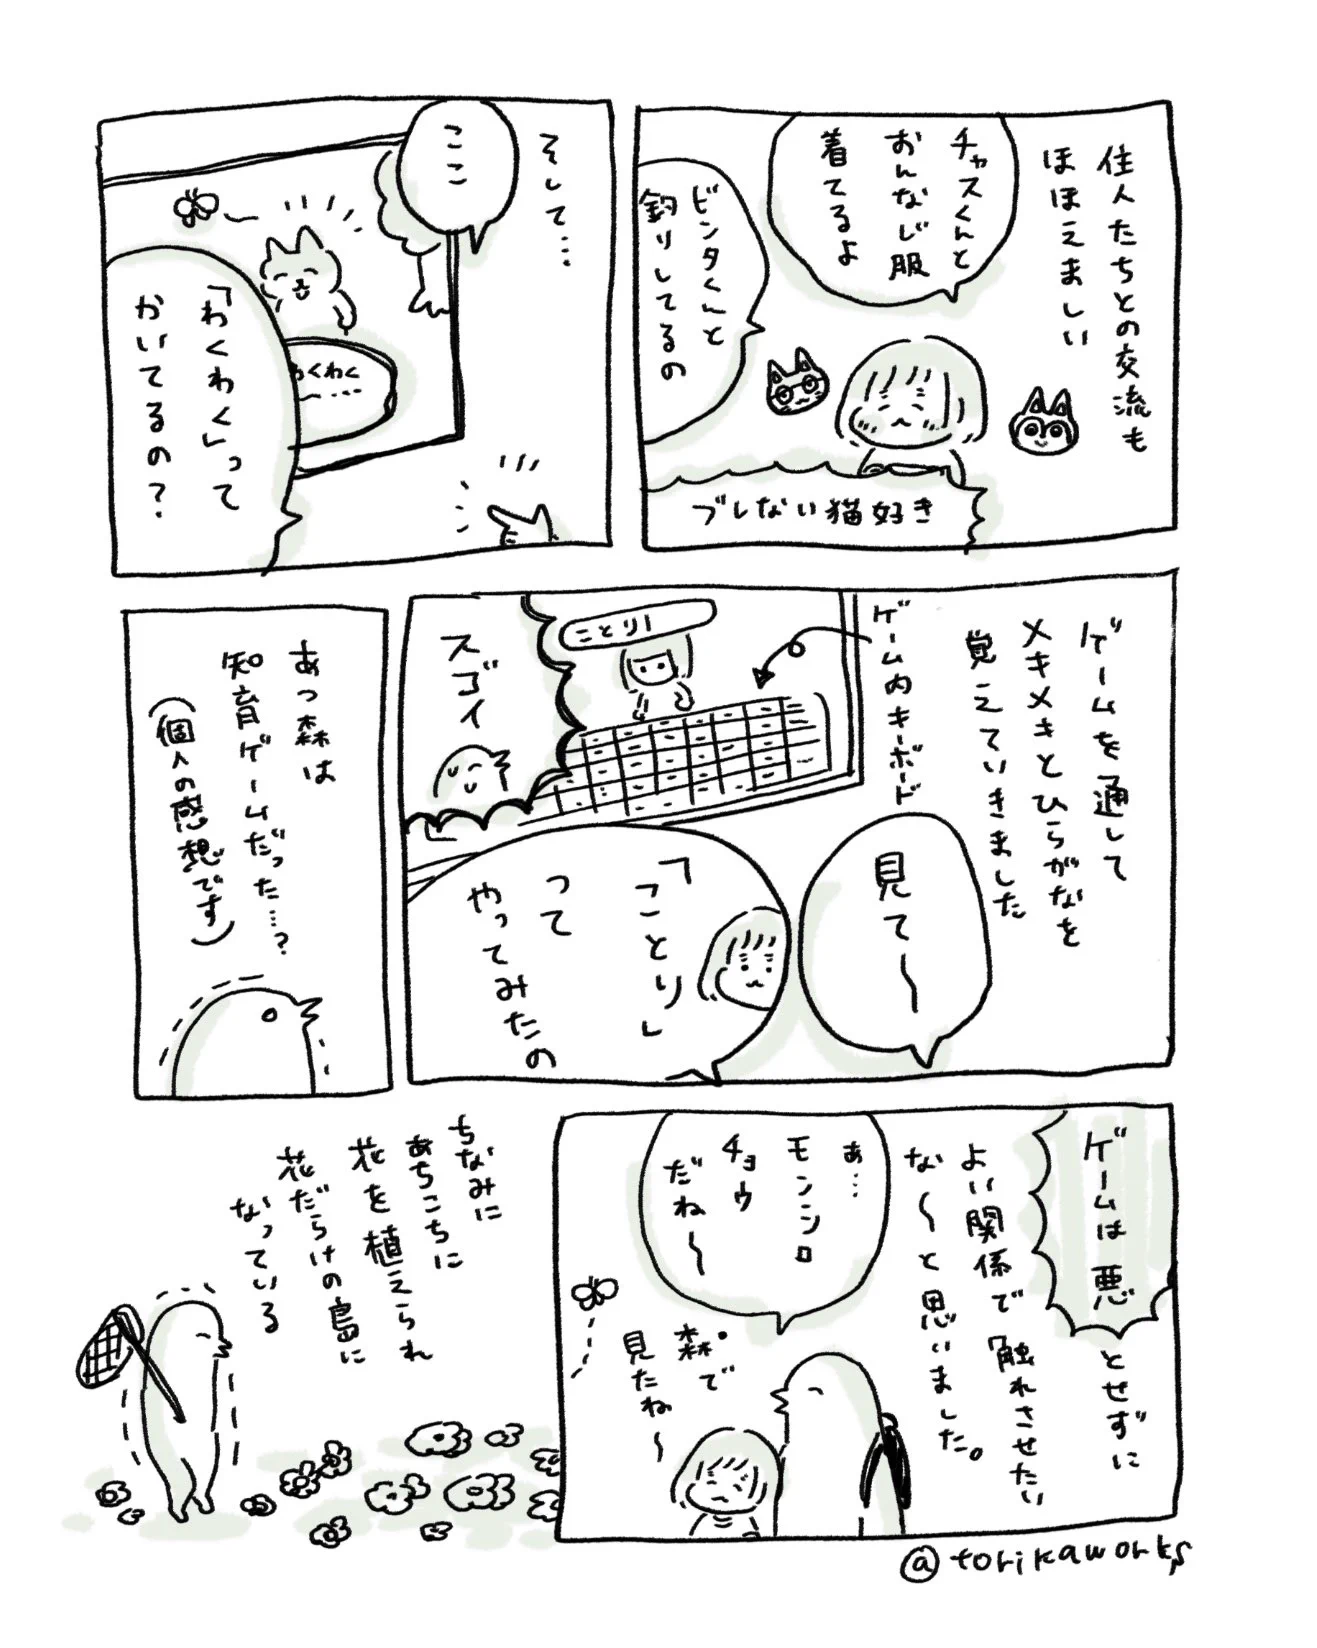 住人たちとの交流も
ほほえましい
チャスくんと
おんなじ服
着てるよ
ビンタくんと
釣りしてるの
ブレない猫好き
そして…
ここ
わくわく
「わくわく」って
かいてるの?
ゲームを通して
メキメキとひらがなを
覚えていきました
ゲーム内キーボード
ことり|
スゴイ
見て〜
「ことり」
って
やってみたの
あつ森は
知育ゲームだった…?
(個人の感想です)
ゲームは悪とせずに
よい関係で触れさせたい
な〜と思いました。
あ…
モンシロ
チョウ
だね〜
森で
見たね〜
ちなみに
あちこちに
花を植えられ
花だらけの島に
なっている
@torikaworks